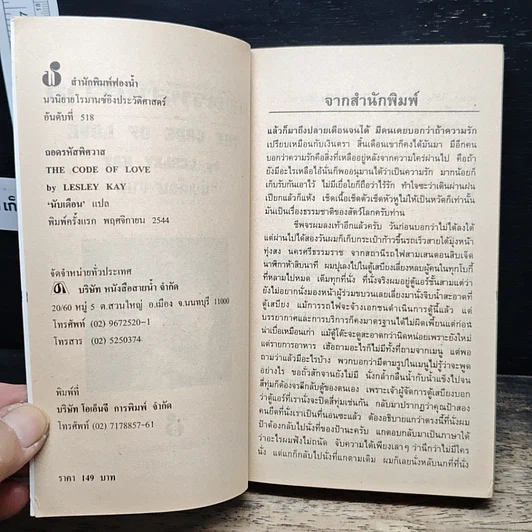 สำนักพิมพ์ฟองน้ำ
นวนิยายโรมานซ์อิงประวัติศาสตร์
อันดับที่ 518
ถอดรหัสพิศวาส
THE CODE OF LOVE
by LESLEY KAY
'นับเดือน' แปล
พิมพ์ครั้งแรก พฤศจิกายน 2544
จัดจำหน่ายทั่วประเทศ
บริษัท หนังสือสายน้ำ จำกัด
20/60 หมู่ 5 ต.สวนใหญ่ อ.เมือง จ.นนทบุรี 11000
โทรศัพท์ (02) 9672520-1
โทรสาร (02) 5250374
พิมพ์ที่
บริษัท โอเอ็นจี การพิมพ์ จำกัด
โทรศัพท์ (02) 7178857-61
ราคา 149 บาท
จากสำนักพิมพ์
แล้วก็มาถึงปลายเดือนจนได้ มีคนเคยบอกว่าถ้าความรัก
เปรียบเหมือนกับเงินตรา สิ้นเดือนเขาก็คงได้มันมา มีอีกคน
บอกว่าความรักคือสิ่งที่เหลืออยู่หลังจากความใคร่ผ่านไป คือถ้า
ยังมีอะไรเหลือไอ้นั่นก็พออนุมานได้ว่าเป็นความรัก มากน้อยก็
เก็บรับกันเอาไว้ ไม่มีเยื่อใยก็ถือว่าไร้รัก ทำใจซะว่าเดินผ่านฝน
เปียกแล้วก็แห้ง เช็ดเนื้อเช็ดตัวเช็ดหัวหูไม่ให้เป็นหวัดก็เท่านั้น
มันเป็นเรื่องธรรมชาติของสัตว์โลกครับท่าน
ชีพจรผมลงเท้าอีกแล้วครับ วันก่อนบอกว่าไม่ได้ลงใต้
แต่ผ่านไปได้สองวันผมก็เก็บกระเป๋าก้าวขึ้นรถเร็วสายใต้มุ่งหน้า
ทุ่งสง นครศรีธรรมราช จากสถานีรถไฟสามเสนตอนสิบเจ็ด
นาฬิกาห้าสิบนาที ผมปุเลงไปในตู้เสบียงเลี่ยงหลบผู้คนในทุกโบกี้
ที่หลามไปหมด เต็มทุกที่นั่ง ที่นั่งจริงผมอยู่ตู้แอร์ชั้นสามแต่ว่า
ยังไม่อยากนั่งมองหน้าผู้ร่วมขบวนเลยเลี่ยงมานั่งจิบน้ำสะอาดที่
ตู้เสบียง แม้การรถไฟจะจ้างเอกชนดำเนินการตู้นี้แล้ว แต่
บรรยากาศและการบริการก็คงมาตรฐานได้ไม่ผิดเพี้ยนแต่ก่อน
น่าเบื่อเหมือนเก่า แม้ตู้โต๊ะจะดูสะอาดกว่านิดหน่อยเพราะยังใหม่
แต่รายการอาหาร เฮ้อถามอะไรก็ไม่มีทั้งที่ถามจากเมนู แต่พอ
ถามว่าแล้วมีอะไรบ้าง พวกบอกว่ามีตามรูปในเมนูไม่รู้ว่าจะพูด
อย่างไร ขอถั่วสักจานยังไม่มี นั่งกล้ำกลืนน้ำแข็งไปจน
สี่ทุ่มก็ต้องจรลีกลับตู้ของตนเอง เพราะเจ้าผู้จัดการตู้เสบียงบอก
ว่าตู้แอร์ที่เรานั่งจะปิดสี่ทุ่มเช่นกัน กลับมาปรากฏว่าคุณป้าสอง
คนยึดที่นั่งเราเป็นที่นอนซะแล้ว ต้องอธิบายแกว่าตรงนี้ที่นั่งผม
ของป้าต้องกลับไปนั่งของป้านะครับ แกตอบกลับมาเป็นภาษาใต้
ว่าอะไรผมฟังไม่ถนัด จับความได้เพียงเลาๆ ว่านึกว่าไม่มีใคร
นั่ง แต่แกก็กลับไปนั่งที่แกตามเดิม ผมก็เลยนั่งหลับนกที่ที่นั่ง